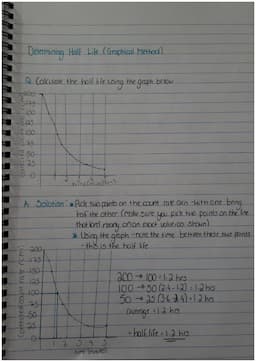 Determining Half Life (Graphical Method)
Q. Calculate the half life using the graph below
200
175
150
125
100
75
50
25
0
A. Solution: • Pick two points on the count rate axis - with one being
half the other (make sure you pick two points on the line
that land nearly on an exact value as shown)
Using the graph - note the time between these two points
- this is the half life
200
175
150
125
100
75
50
25
0
1 2 3 4 5
200 → 100 = 1.2 hrs
100 → 50 (2.4-1.2) = 1.2 hrs
50 → 25 (3.6-2.4) = 1.2 hrs
average = 1.2 hrs
- half life = 1.2 hrs